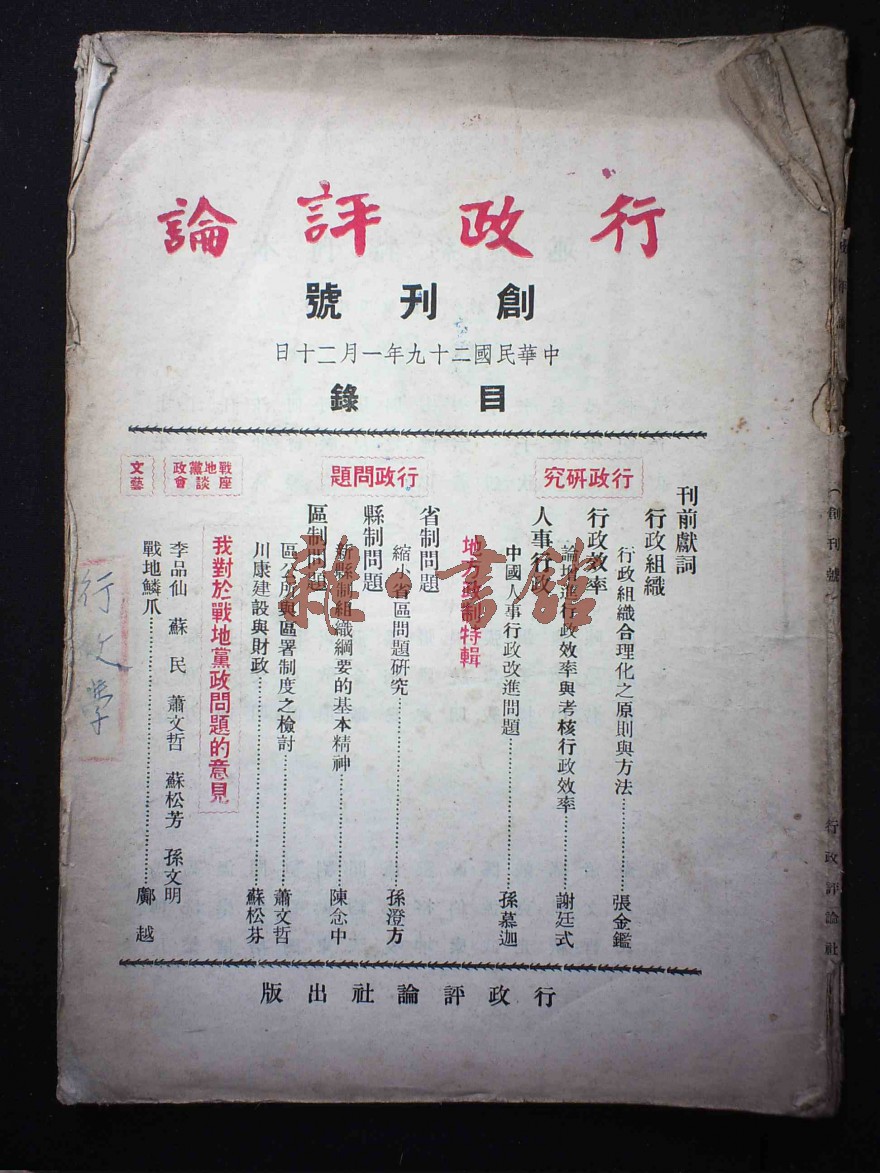 行政評論
創刊號
中華民國二十九年一月二十日
目錄
刊前獻詞
行政研究
行政組織
行政組織合理化之原則與方法……張金鑑
行政效率
論增進行政效率與考核行政效率……謝廷式
人事行政
中國人事行政改進問題……孫慕迦
地方政制特輯
行政問題
省制問題
縮小省區問題研究……孫澄方
縣制問題
新縣制組織綱要的基本精神……陳念中
區制問題
區公所與區署制度之檢討……蕭文哲
川康建設與財政……蘇松芬
戰地黨政座談會
我對於戰地黨政問題的意見
李品仙 蘇民 蕭文哲 蘇松芳 孫文明
文藝
戰地鱗爪……鄺越
行政評論社出版
雜·書館
行文學
(創刊號)
行政評論社